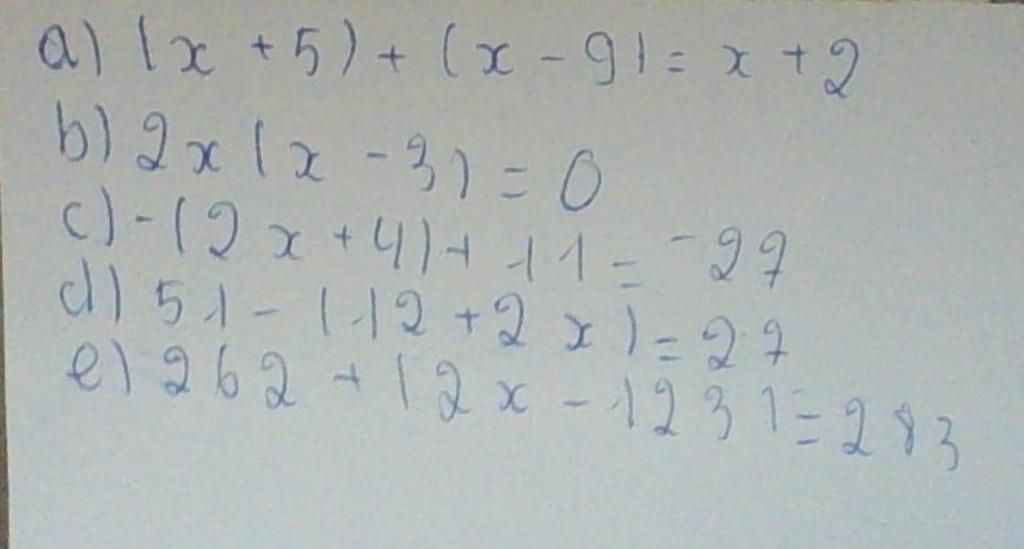 a) (x + 5) + (x - 9) = x + 2
b) 2x (x - 3) = 0
c) -(2x + 4) + 11 = -27
d) 51 - (12 + 2x) = 27
e) 262 + (2x - 123) = 283